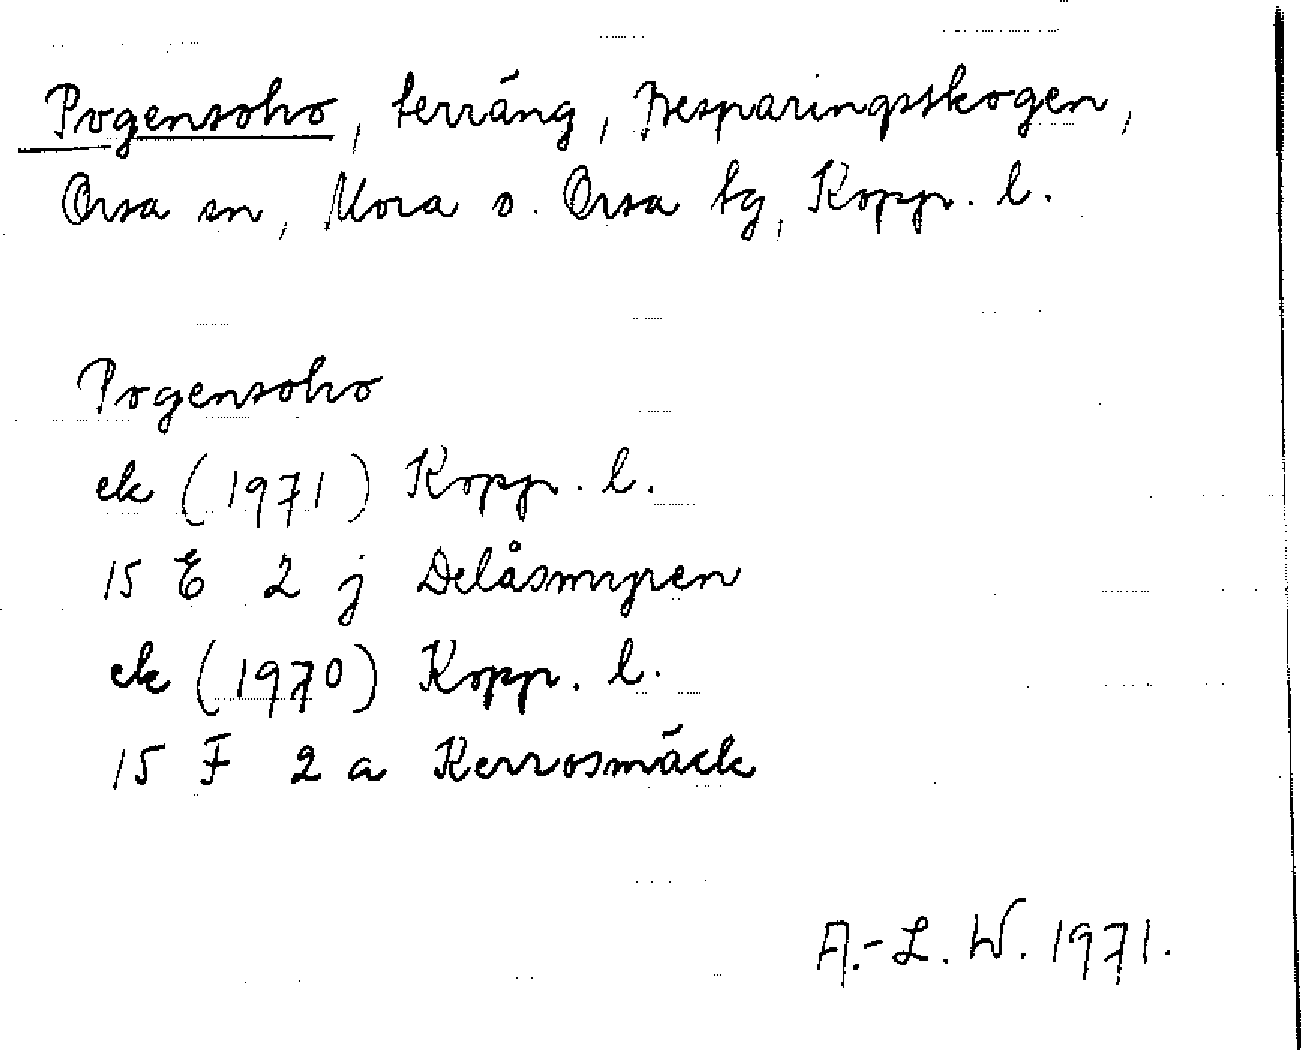 Pogensoho, terräng, Besparingsskogen,
Orsa sn, Mora o. Orsa tg, Kopp. l.
Pogensoho
ek (1971) Kopp. l.
15 E 2 j Delåsmyren
ek (1970) Kopp. l.
15 F 2 a Kerrosmäck
A.-L. W. 1971.